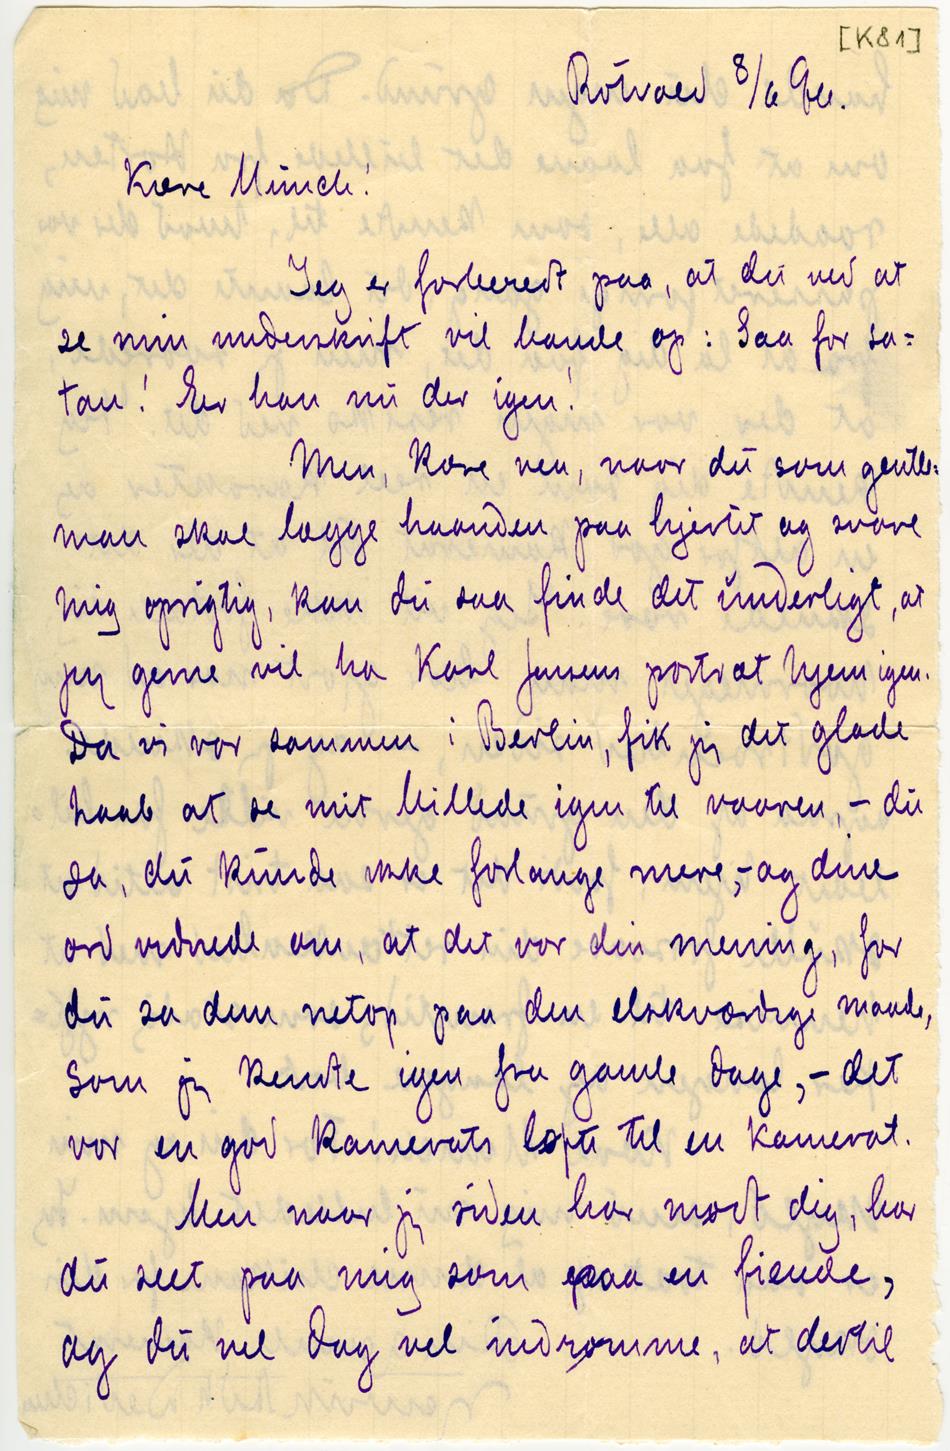 [K81]
Rötvoed 8/6 94.
Kære Münch!
Jeg er forberedt paa, at dü ved at
se min underskrift vil bande op: Saa for sa=
tan! Er han nü der igen!
Men, kære ven, naar dü som gentle=
man skal lægge haanden paa hjertet og svare
mig oprigtig, kan dü saa finde det ünderligt, at
jeg gerne vil ha Karl Jensens portræt hjem igen.
Da vi var sammen i Berlin, fik jeg det glade
haab at se mit billede igen til vaaren, – dü
sa, dü künde ikke forlange mere, – og dine
ord vidnede om, at det var din mening, for
dü sa dem netop paa den elskværdige maade,
som jeg kendte igen fra gamle dage, – det
var en god kamerats løfte til en kamerat.
Men naar jeg siden har mødt dig, har
dü seet paa mig som paa en fiende,
og dü vil dog vel indrømme, at dertil